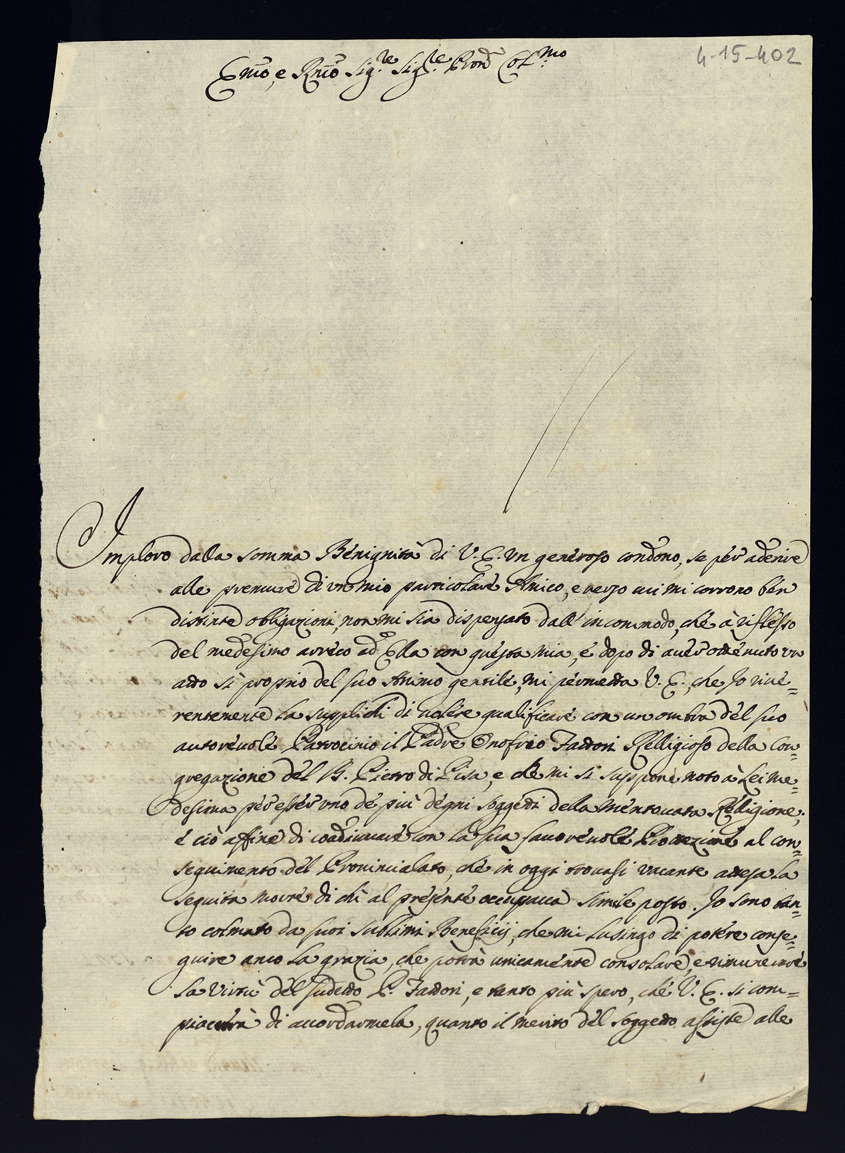 4-15-402
Em̃o, e Rm̃o Sig.re Sig.re Pron̄ Col.mo
Imploro dalla somma Benignità di V. E. un generoso condono, se per aderire
alle premure di un mio particolare Amico, e verso cui mi corrono ben
distinte obligazioni, non mi sia dispensato dall'incommodo, che à riflesso
del medesimo arreco ad Ella con questa mia, e dopo di aver ottenuto un
atto sì proprio del suo Animo gentile, mi permetta V. E., che Io rive=
rentemente La supplichi di volere qualificare con un ombra del suo
autorevole Patrocinio il Padre Onofrio Fattori Religioso della Con=
gregazione del B. Pietro di Pisa, e che mi si suppone noto à Lei me=
desima per esser uno de più degni soggetti della mentovata Religione,
e ciò affine di coadiuvare con la sua favorevole Protezione al con=
seguimento del Provincialato, che in oggi trovasi vacante attesa la
seguita morte di chi al presente occupava simile posto. Io sono tan=
to colmato da suoi sublimi Beneficij, che mi lusingo di potere conse=
guire anco la grazia, che potrà unicamente consolare, e rimunerare
la virtù del sudetto P. Fattori, e tanto più spero, che V. E. si com=
piacerà di accordarmela, quanto il merito del soggetto assiste alle